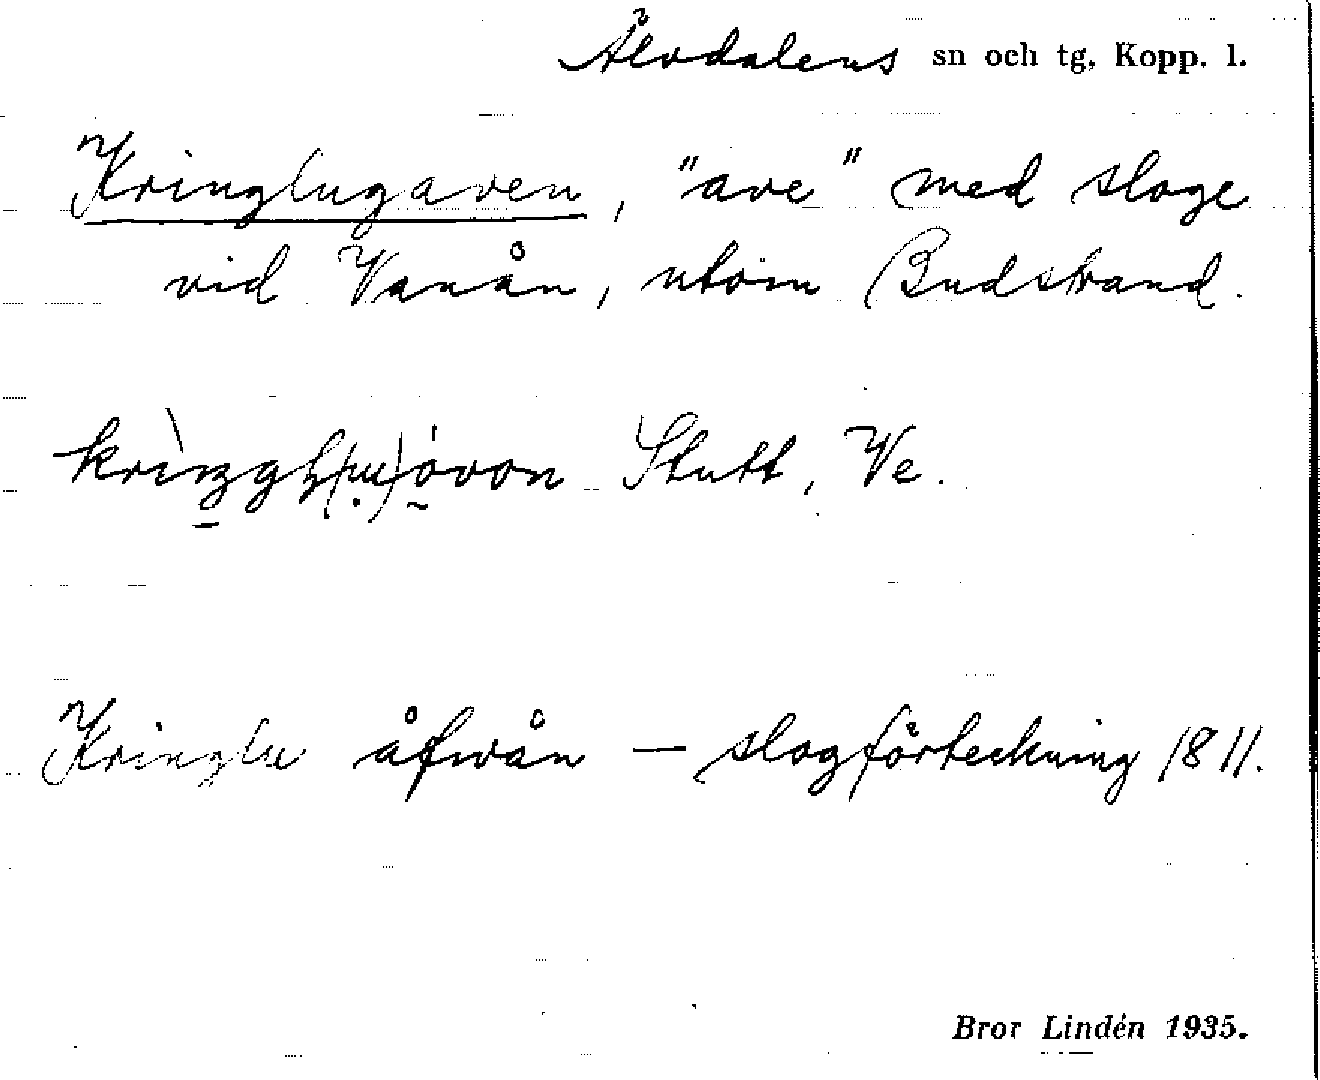 Älvdalens sn och tg, Kopp. l.
Kringlugaven, "ave" med sloge
vid Vanån, utom Budstrand.
Stutt, Ve.
Kringlu åfwån — slogförteckning 1811.
Bror Lindén 1935.